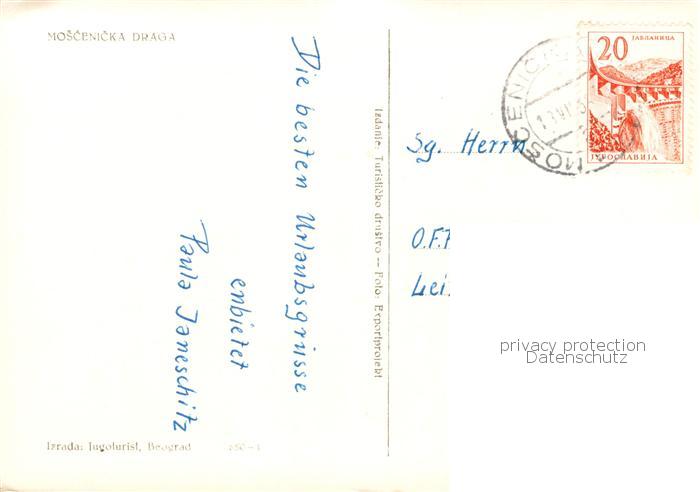 MOŠĆENIČKA DRAGA
Die besten Urlaubsgrüsse
enbietet
Paula Janeschitz
Izdanje: Turističko društvo — Foto: Exportprojekt
20
ЈАБЛАНИЦА
ЈУГОСЛАВИЈА
Sg. Herrn
O.F.
Lei
privacy protection
Datenschutz
Izrada: Jugoturist, Beograd